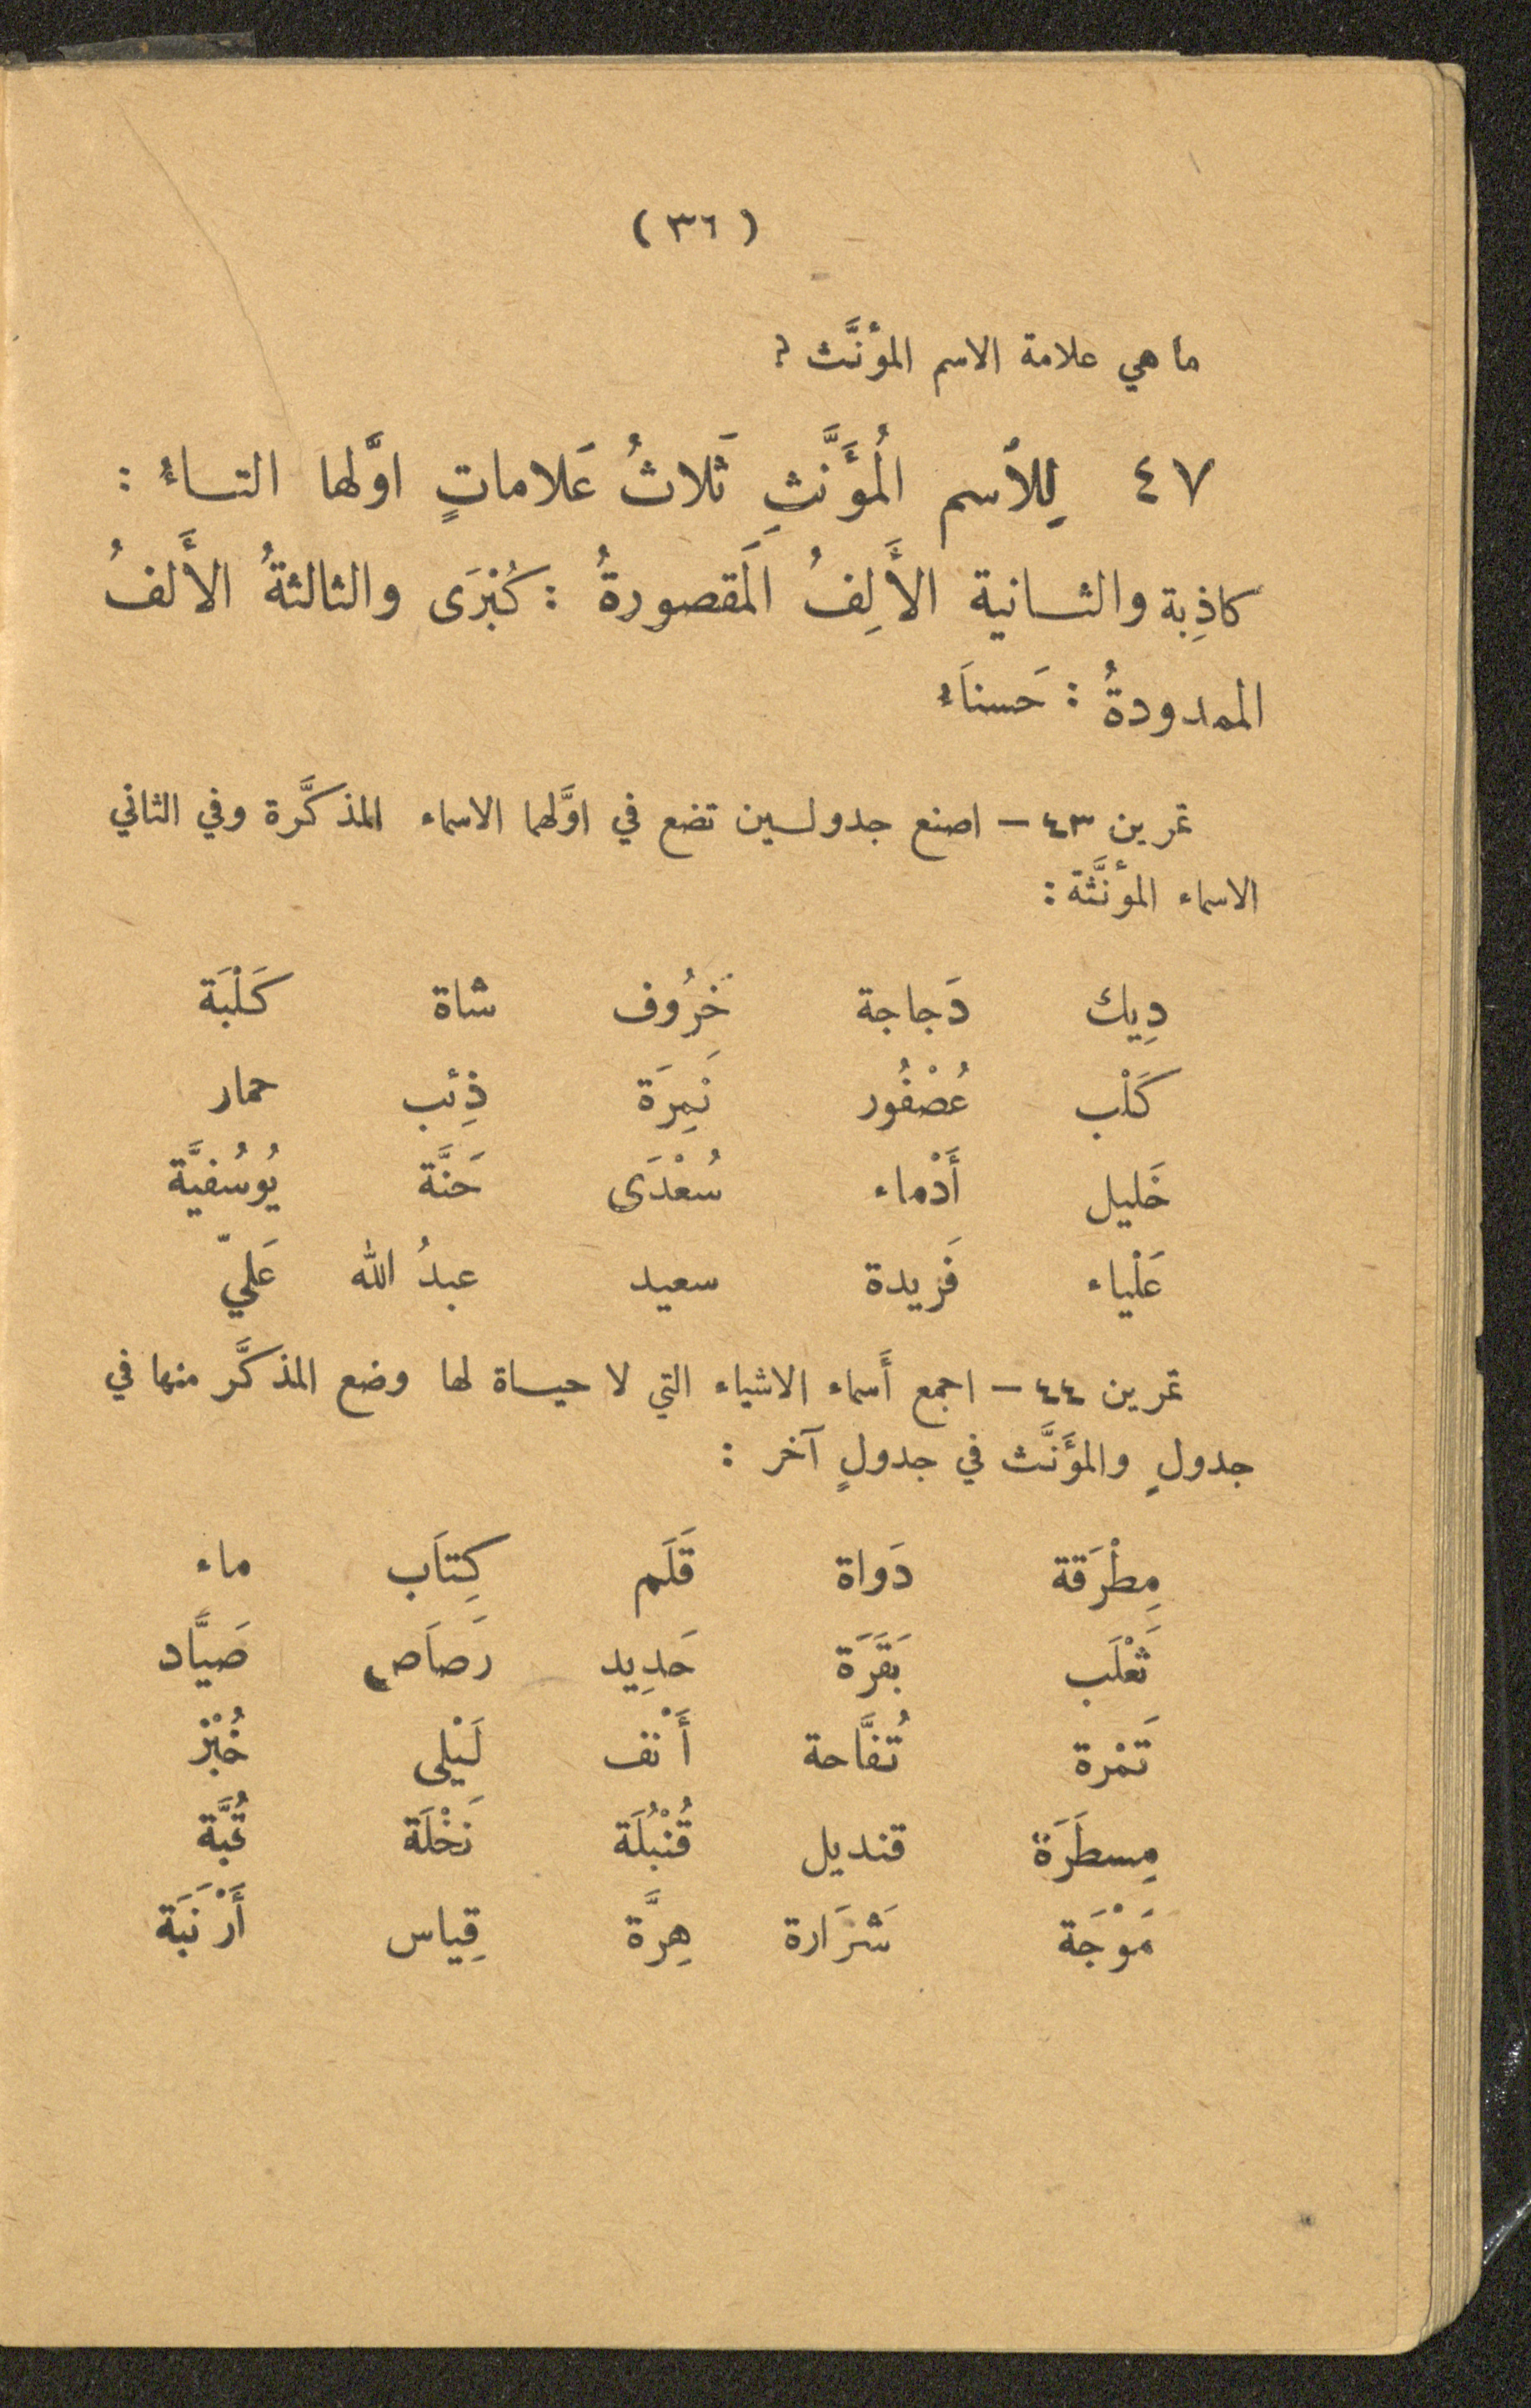 ( ٣٦ )
ما هي علامة الاسم المؤنَّث ؟
٤٧ لِلاسم المُؤَنَّثِ ثَلاثُ عَلاماتٍ اوَّلها التاءُ :
كاذِبة والثانية الأَلِفُ المَقصورةُ : كُبْرَى والثالثةُ الأَلفُ
الممدودةُ : حَسناَءُ
تمرين ٤٣ – اصنع جدولين تضع في اوَّلهما الاسماء المذكَّرة وفي الثاني
الاسماء المؤنَّثة :
دِيك دَجاجة خَرُوف شاة كَلْبَة
كَلْب عُصْفُور نَمِرَة ذِئب حمار
خَليل أَدْماء سُعْدَى حَنَّة يُوسُفيَّة
عَلْياء فَريدة سعيد عبدُ الله عَليّ
تمرين ٤٤ – اجمع أَسماء الاشياء التي لا حياة لها وضع المذكَّر منها في
جدولٍ والمؤَنَّث في جدولٍ آخر :
مِطْرَقة دَواة قَلَم كِتاَب ماء
ثَعْلَب بَقَرَة حَدِيد رَصاَص صَيَّاد
تَمْرة تُفَّاحة أَنْف لَيْلى خُبْز
مِسطَرَة قنديل قُنْبُلَة نَخْلَة قُبَّة
مَوْجَة شَرَارة هِرَّة قِياس أَرْنَبَة